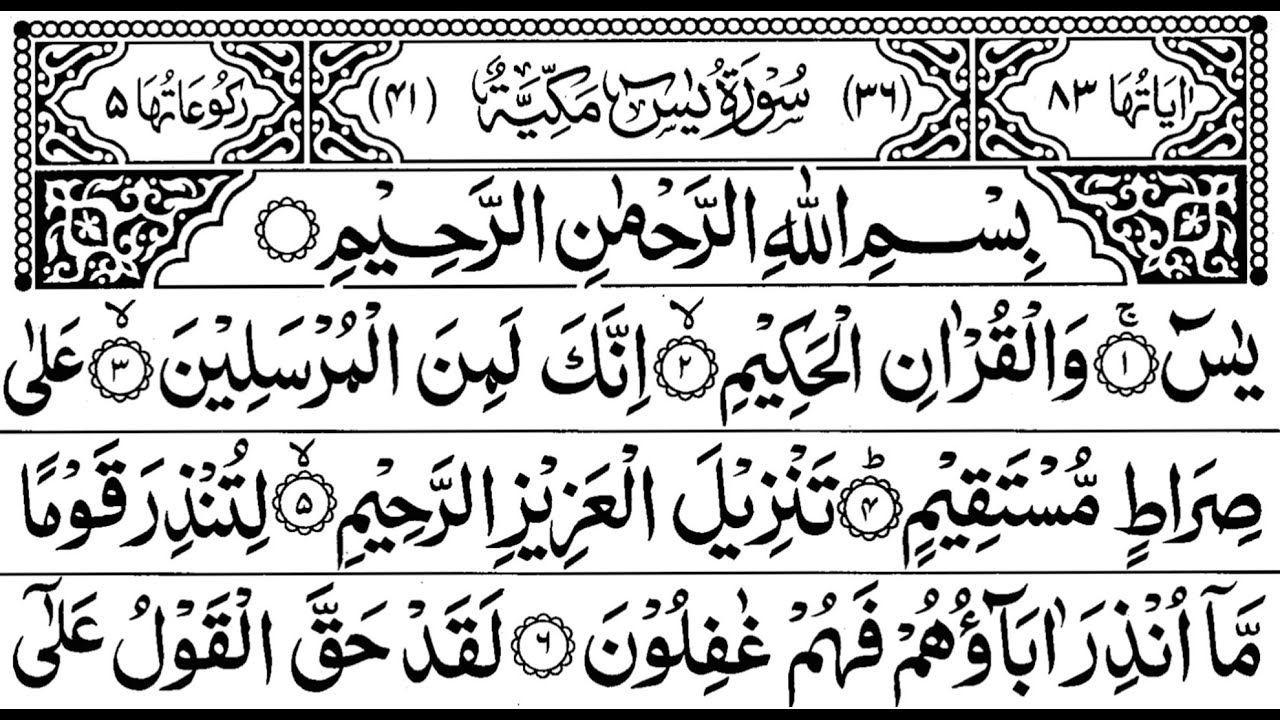 اٰيَاتُهَا ٨٣ (٣٦) سُوْرَةُ يٰسٓ مَكِّيَّةٌ (٤١) رُكُوْعَاتُهَا ٥
بِسْمِ اللّٰهِ الرَّحْمٰنِ الرَّحِيْمِ
يٰسٓ ۚ‏﴿۱﴾ وَالْقُرْاٰنِ الْحَكِيْمِ ۙ‏﴿۲﴾ اِنَّكَ لَمِنَ الْمُرْسَلِيْنَ ۙ‏﴿۳﴾ عَلٰى
صِرَاطٍ مُّسْتَقِيْمٍ ؕ‏﴿۴﴾ تَنْزِيْلَ الْعَزِيْزِ الرَّحِيْمِ ۙ‏﴿۵﴾ لِتُنْذِرَ قَوْمًا
مَّاۤ اُنْذِرَ اٰبَآؤُهُمْ فَهُمْ غٰفِلُوْنَ ﴿۶﴾ لَقَدْ حَقَّ الْقَوْلُ عَلٰٓى